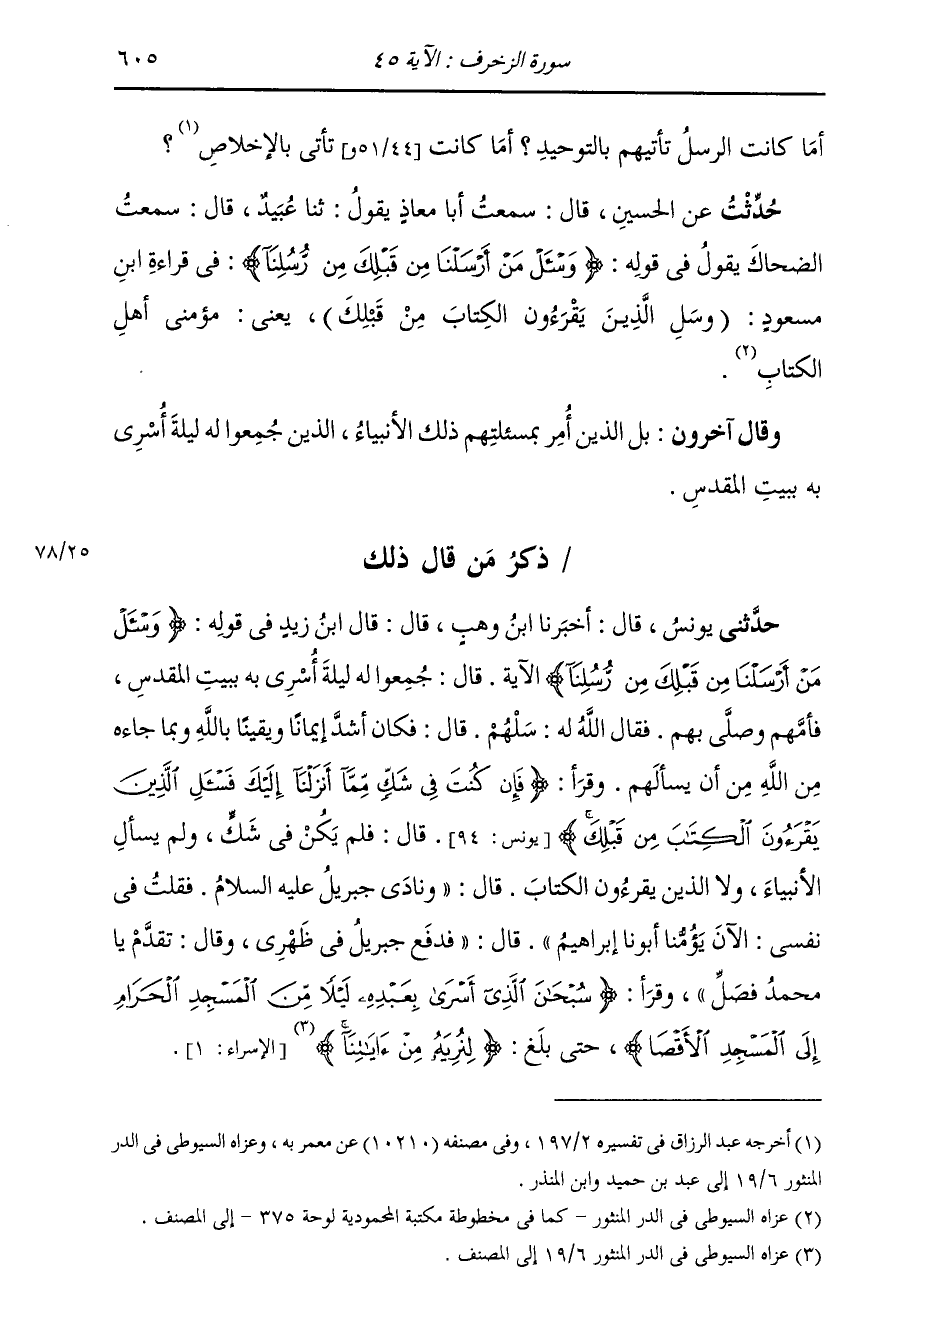 سورة الزخرف : الآية ٤٥
٦٠٥
أمَا كانت الرسلُ تأتيهم بالتوحيدِ ؟ أمَا كانت [٥١/٤٤و] تأتى بالإخلاصِ(١) ؟
حُدِّثْتُ عن الحسينِ ، قال : سمعتُ أبا معاذٍ يقولُ : ثنا عُبَيدٌ ، قال : سمعتُ
الضحاكَ يقولُ فى قولِه : ﴿ وَسْـَٔلْ مَنْ أَرْسَلْنَا مِن قَبْلِكَ مِن رُّسُلِنَآ ﴾ : فى قراءةِ ابنِ
مسعودٍ : ( وسَلِ الَّذِينَ يَقْرَءُون الكِتابَ مِنْ قَبْلِكَ ) ، يعنى : مؤمنى أهلِ
الكتابِ(٢) .
وقال آخرون : بل الذين أُمِر بمسئلتِهم ذلك الأنبياءُ ، الذين جُمِعوا له ليلةَ أُسْرِى
به ببيتِ المقدسِ .
٧٨/٢٥
/ ذكرُ مَن قال ذلك
حدَّثنى يونسُ ، قال : أخبَرنا ابنُ وهبٍ ، قال : قال ابنُ زيدٍ فى قولِه : ﴿ وَسْـَٔلْ
مَنْ أَرْسَلْنَا مِن قَبْلِكَ مِن رُّسُلِنَآ ﴾ الآية . قال : جُمِعوا له ليلةَ أُسْرِى به ببيتِ المقدسِ ،
فأمَّهم وصلَّى بهم . فقال اللَّهُ له : سَلْهُمْ . قال : فكان أشدَّ إيمانًا ويقينًا باللَّهِ وبما جاءه
مِن اللَّهِ مِن أن يسألَهم . وقرَأ : ﴿ فَإِن كُنتَ فِى شَكٍّ مِّمَّآ أَنزَلْنَآ إِلَيْكَ فَسْـَٔلِ ٱلَّذِينَ
يَقْرَءُونَ ٱلْكِتَٰبَ مِن قَبْلِكَۚ ﴾ [يونس: ٩٤] . قال : فلم يَكُنْ فى شَكٍّ ، ولم يسألِ
الأنبياءَ ، ولا الذين يقرءُون الكتابَ . قال : « ونادَى جبريلُ عليه السلامُ . فقلتُ فى
نفسى : الآنَ يَؤُمُّنا أبونا إبراهيمُ » . قال : « فدفَع جبريلُ فى ظَهْرِى ، وقال : تقدَّمْ يا
محمدُ فصَلِّ » ، وقرَأ : ﴿ سُبْحَٰنَ ٱلَّذِىٓ أَسْرَىٰ بِعَبْدِهِۦ لَيْلًا مِّنَ ٱلْمَسْجِدِ ٱلْحَرَامِ
إِلَى ٱلْمَسْجِدِ ٱلْأَقْصَا ﴾ ، حتى بلَغ : ﴿ لِنُرِيَهُۥ مِنْ ءَايَٰتِنَآۚ ﴾(٣) [الإسراء: ١] .
(١) أخرجه عبد الرزاق فى تفسيره ١٩٧/٢ ، وفى مصنفه (١٠٢١٠) عن معمر به ، وعزاه السيوطى فى الدر
المنثور ١٩/٦ إلى عبد بن حميد وابن المنذر .
(٢) عزاه السيوطى فى الدر المنثور - كما فى مخطوطة مكتبة المحمودية لوحة ٣٧٥ - إلى المصنف .
(٣) عزاه السيوطى فى الدر المنثور ١٩/٦ إلى المصنف .